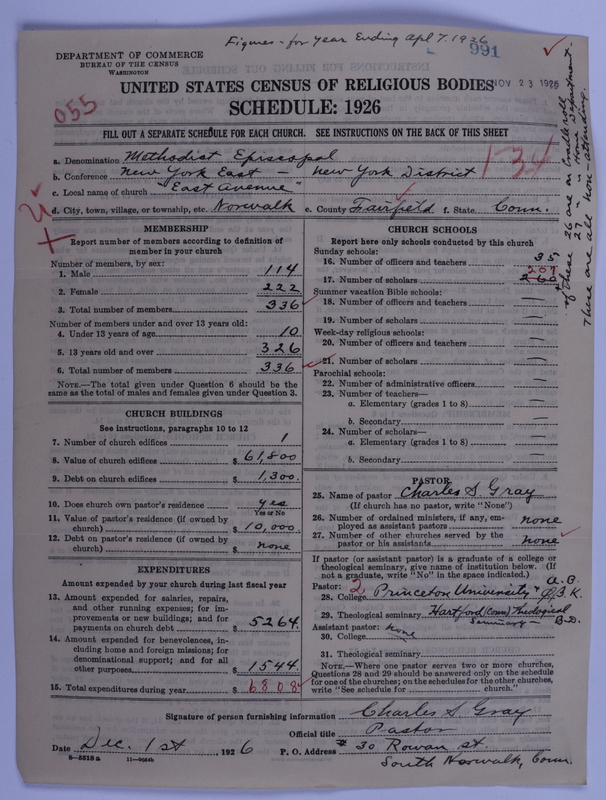 Figures - for Year Ending Apl 7. 1926
991
DEPARTMENT OF COMMERCE
BUREAU OF THE CENSUS
WASHINGTON
NOV 23 1926
UNITED STATES CENSUS OF RELIGIOUS BODIES
SCHEDULE: 1926
055
FILL OUT A SEPARATE SCHEDULE FOR EACH CHURCH. SEE INSTRUCTIONS ON THE BACK OF THIS SHEET
a. Denomination Methodist Episcopal
b. Conference New York East - New York District
134
c. Local name of church "East Avenue"
d. City, town, village, or township, etc. Norwalk e. County Fairfield f. State Conn.
of these 26 are on Cradle roll
" 27 " in Home Department.
These are all non-attending.
MEMBERSHIP
Report number of members according to definition of
member in your church
Number of members, by sex:
1. Male 114
2. Female 222
3. Total number of members 336
Number of members under and over 13 years old:
4. Under 13 years of age 10
5. 13 years old and over 326
6. Total number of members 336
NOTE.—The total given under Question 6 should be the
same as the total of males and females given under Question 3.
CHURCH BUILDINGS
See instructions, paragraphs 10 to 12
7. Number of church edifices 1
8. Value of church edifices $ 61,800
9. Debt on church edifices $ 1,300.
10. Does church own pastor's residence yes
Yes or No
11. Value of pastor's residence (if owned by
church) $ 10,000.
12. Debt on pastor's residence (if owned by
church) $ none
EXPENDITURES
Amount expended by your church during last fiscal year
13. Amount expended for salaries, repairs,
and other running expenses; for im-
provements or new buildings; and for
payments on church debt $ 5264.
14. Amount expended for benevolences, in-
cluding home and foreign missions; for
denominational support; and for all
other purposes $ 1544.
15. Total expenditures during year $ 6808
CHURCH SCHOOLS
Report here only schools conducted by this church
Sunday schools:
16. Number of officers and teachers 35
207
17. Number of scholars 260
Summer vacation Bible schools:
18. Number of officers and teachers —
19. Number of scholars —
Week-day religious schools:
20. Number of officers and teachers —
21. Number of scholars —
Parochial schools:
22. Number of administrative officers —
23. Number of teachers—
a. Elementary (grades 1 to 8) —
b. Secondary —
24. Number of scholars—
a. Elementary (grades 1 to 8) —
b. Secondary —
PASTOR
25. Name of pastor Charles S Gray
(If church has no pastor, write "None")
26. Number of ordained ministers, if any, em-
ployed as assistant pastors none
27. Number of other churches served by the
pastor or his assistants none
If pastor (or assistant pastor) is a graduate of a college or
theological seminary, give name of institution below. (If
not a graduate, write "No" in the space indicated.)
Pastor: 2 A.B.
28. College Princeton University + Φ.B.K.
29. Theological seminary Hartford (Conn) Theological
Seminary - B.D.
Assistant pastor: none
30. College
31. Theological seminary
NOTE.—Where one pastor serves two or more churches,
Questions 28 and 29 should be answered only on the schedule
for one of the churches; on the schedules for the other churches,
write "See schedule for church."
Signature of person furnishing information Charles S Gray
Official title Pastor
Date Dec. 1st, 1926 P. O. Address # 30 Rowan st.
South Norwalk, Conn.